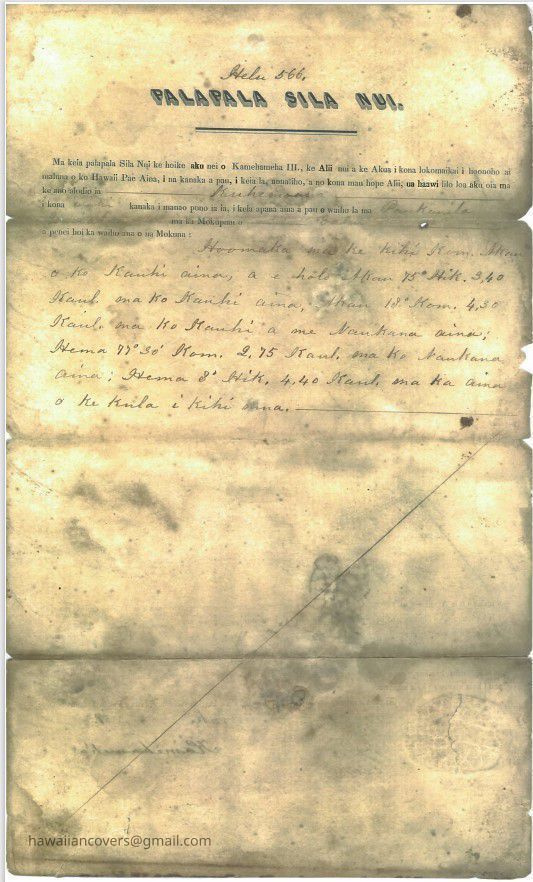 Helu 566.
PALAPALA SILA NUI.
Ma keia palapala Sila Nui ke hoike aku nei o Kamehameha III., ke Alii nui a ke Akua i kona lokomaikai i hoonoho ai
maluna o ko Hawaii Pae Aina, i na kanaka a pau, i keia la, nonaiho, a no kona mau hope Alii, ua haawi lilo loa aku oia ma
ke ano alodio ia
i kona kanaka i manao pono ia ia, i kela apana aina a pau e waiho la ma
ma ka Mokupuni o
a penei hoi ka waiho ana o na Mokuna:
Hoomaka ma ke kihi Kom. Akau
o ko Kauhi aina, a e holo Akau 75° Hik. 3,40
Kaul. ma ko Kauhi aina, Akau 18° Kom. 4,30
Kaul. ma ko Kauhi a me Naukana aina;
Hema 77° 30' Kom. 2,75 Kaul. ma ko Naukana
aina; Hema 8° Hik. 4,40 Kaul. ma ka aina
o ke kula i kihi mua.
hawaiiancovers@gmail.com